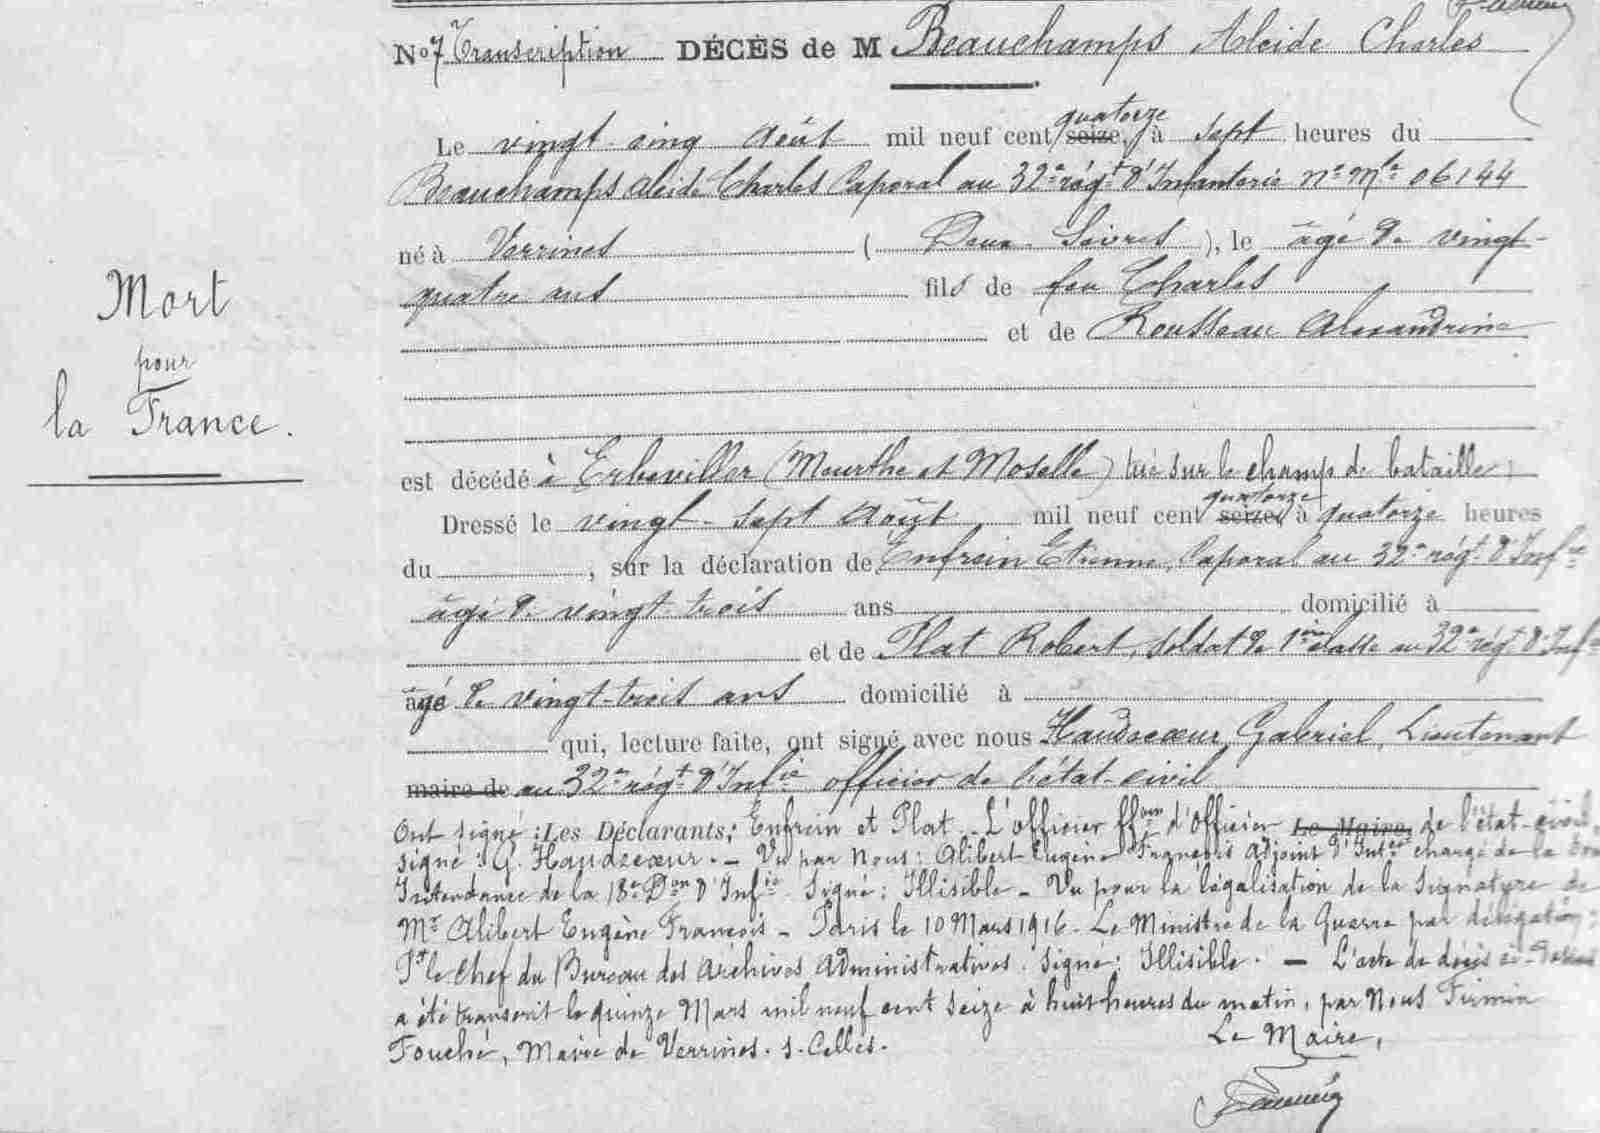 No 7 Transcription DÉCÈS de M Beauchamps Alcide Charles
Le vingt-cinq Août mil neuf cent seize, quatorze à sept heures du
Beauchamps Alcide Charles Caporal au 32e régt d'Infanterie No Mle 06144
né à Verrines (Deux-Sèvres), le âgé de vingt-
quatre ans fils de feu Charles
et de Rousseau Alexandrine
Mort
pour
la France.
est décédé à Erbéviller (Meurthe et Moselle) tué sur le champ de bataille
Dressé le vingt-sept Août, mil neuf cent seize, quatorze à quatorze heures
du , sur la déclaration de Enfrein Etienne, Caporal au 32e régt d'Infie
âgé de vingt-trois ans domicilié à
et de Plat Robert, soldat de 1ère classe au 32e régt d'Inf
âgé de vingt-trois ans domicilié à
qui, lecture faite, ont signé avec nous Haudecœur, Gabriel, Lieutenant
maire de au 32e régt d'Infie officier de l'état-civil
Ont signé : Les Déclarants; Enfrein et Plat. L'officier ffon d'officier Le Maire, de l'état-civil,
signé : G. Haudecœur. — Vu par Nous : Alibert Eugène François adjoint d'Intce chargé de la
Intendance de la 18e Don d'Infie Signé : Illisible — Vu pour la légalisation de la Signature de
Mr Alibert Eugène François — Paris le 10 Mars 1916. Le Ministre de la Guerre par délégation :
Pr le Chef du Bureau des Archives Administratives. Signé : Illisible. — L'acte de décès ci-dessus
a été transcrit le quinze Mars mil neuf cent seize à huit heures du matin, par Nous Firmin
Fouché, Maire de Verrines. s. Celles.
Le Maire,